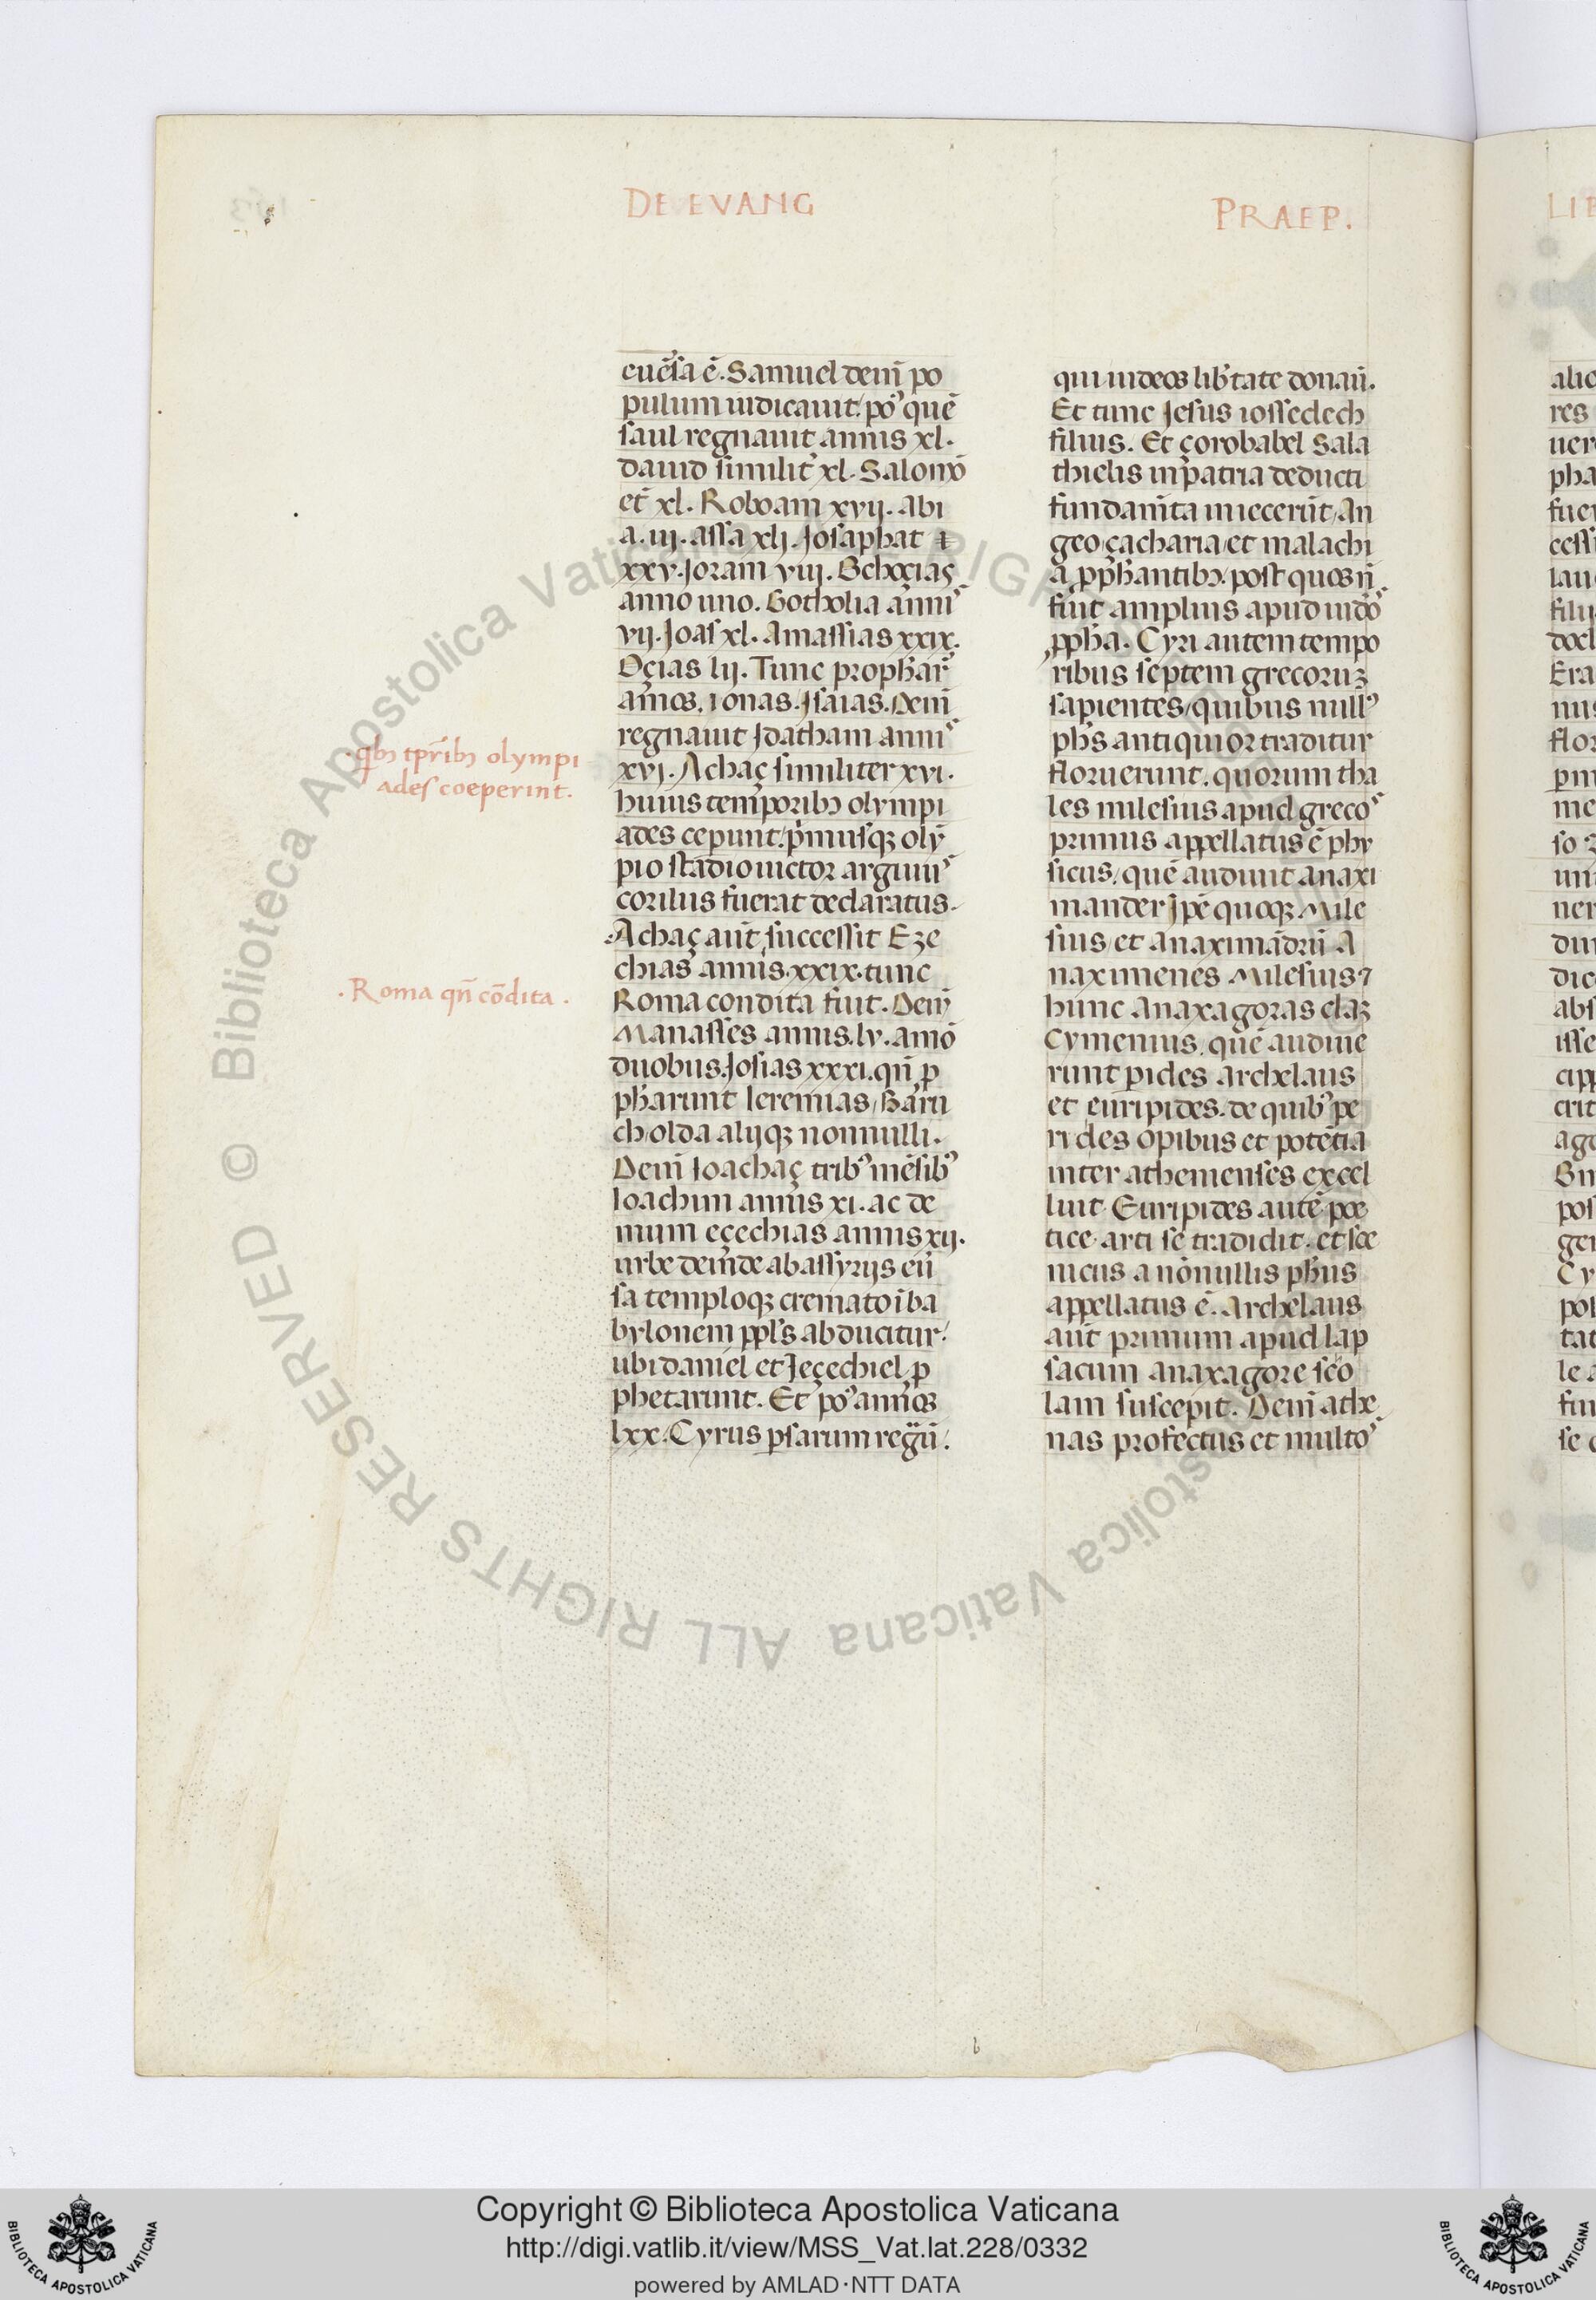 DE EVANG
PRAEP.
euẽsa ẽ. Samuel deni᷃ po
pulum iudicauit: po᷒ quẽ
saul regnauit annis xl.
dauid similit᷑ xl. Salomõ
et᷑ xl. Roboam xvij. Abi
a. iij. assa xlj. Josaphat
xxv. Joram viij. Ochozias
anno uno. Gotholia anni᷒
vij. Joas xl. Amassias xxix.
Oçias lij. Tunc prophar᷑
amos. ionas. Jsaias. Deni᷃
regnauit Joatham anni᷒
xvj. Achaç similiter xvi.
huius temporibꝫ olympi
ades cepunt. p᷑musqꝫ oly᷃
pio stadio uictor argiuu᷒
corilus fuerat declaratus.
Achaç aut᷑ successit Eze
chias annis. xxix. tunc
Roma condita fuit. Deni᷃
Manasses annis. lv. amõ
duobus. Josias xxxi. qñ ꝓ
pharunt Ieremias, Baru
ch olda alijqꝫ nonnulli.
Deni᷃ Ioachaç trib᷒ mẽsib᷒
Ioachim annis xi. ac de
mum eçechias annis xij.
urbe deinde ab assyrijs eũ
sa temploqꝫ cremato ĩ ba
bylonem ppl᷑s abducitur.
ubi daniel et Jeçechiel ꝓ
phetarunt. Et po᷒ annos
lxx. Cyrus ꝑsarum regũ.
·qbꝫ tpr᷑ibꝫ olympi
ades coeperint.
·Roma qñ cõdita.
qui iudeos lib᷑tate donau᷑.
Et tunc Jesus iossedech
filius. Et çorobabel Sala
thielis in patria deducti
fundam᷑ta iniecerũt, An
geo, çacharia, et malachi
a ꝓph᷑antibꝫ. post quos ñ
fuit amplius apud iudeo᷒
ꝓph᷑a. Cyri autem tempo
ribus septem grecoruꝫ
sapientes, quibus null᷒
ph᷑s antiquior traditur
floruerunt. quorum tha
les milesius apud greco᷒
primus appellatus ẽ phy
sicus. quẽ audiuit anaxi
mander ipẽ quoqꝫ Mile
sius, et anaximãdrũ A
naximenes Milesius ⁊
hunc anaxagoras claꝫ
Cymenius. quẽ audiue
runt pides archelaus
et euripides. de quib᷒ pe
ri cles opibus et potẽtia
inter athenienses excel
luit. Euripides autẽ poe
tice arti se tradidit. et sce
nicus a nõnullis ph᷑us
appellatus ẽ. Archelaus
aut᷑ primum apud lap
sacum anaxagore sco
lam suscepit. Deni᷃ athe
nas profectus et multo᷒
b
Copyright © Biblioteca Apostolica Vaticana
http://digi.vatlib.it/view/MSS_Vat.lat.228/0332
powered by AMLAD·NTT DATA